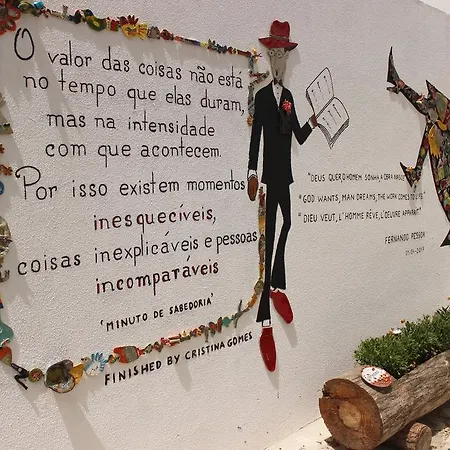 O valor das coisas não está
no tempo que elas duram,
mas na intensidade
com que acontecem.
Por isso existem momentos
inesquecíveis,
coisas inexplicáveis e pessoas
incomparáveis
'MINUTO DE SABEDORIA'
FINISHED BY CRISTINA GOMES
"DEUS QUER O HOMEM SONHA A OBRA NASCE"
"GOD WANTS, MAN DREAMS, THE WORK COMES TO LIFE"
"DIEU VEUT, L'HOMME RÊVE, L'OEUVRE APPARAIT"
FERNANDO PESSOA